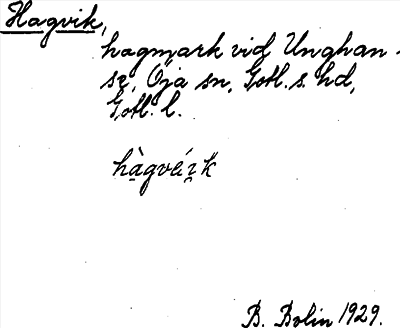 Hagvik,
hagmark vid Unghan-
se, Öja sn, Gotl. s. hd,
Gotl. l.
hàgvéi̯k
B. Bolin 1929.